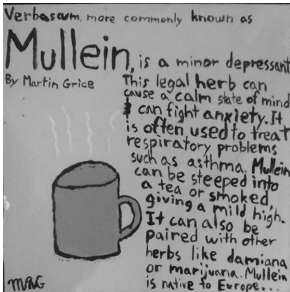 Verbascum, more commonly known as
Mullein, is a minor depressant
By Martin Grice
This legal herb can
cause a calm state of mind
& can fight anxiety. It
is often used to treat
respiratory problems
such as asthma. Mullein
can be steeped into
a tea or smoked,
giving a mild high.
It can also be
paired with other
herbs like damiana
or marijuana. Mullein
is native to Europe...